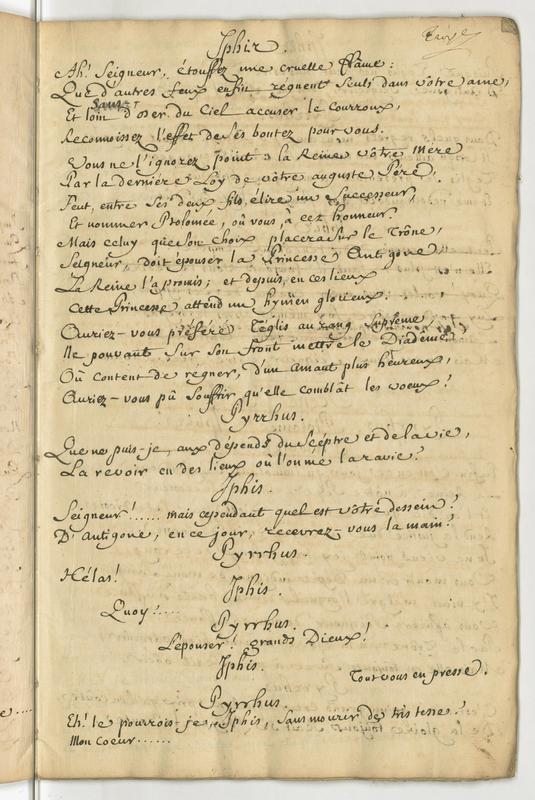 Iphis.
Ah! Seigneur, étouffez une cruelle flâme:
Que d'autres feux enfin regnent seuls dans votre ame,
Sans
Et loin d'oser du Ciel accuser le courroux,
Reconnoissez l'effet de ses bontez pour vous.
Vous ne l'ignorez point: la Reine votre mere
Par la derniére Loy de vôtre auguste Pere,
Peut, entre ses deux fils, élire un Successeur,
Et nommer Ptolomée, où vous, à cet honneur
Mais celuy que son choix placera sur le Trône,
Seigneur, doit épouser la Princesse Antigone,
La Reine l'a promis; et depuis, en ces lieux
Cette Princesse attend un hymen glorieux:
Auriez-vous préféré Téglis au rang suprême
Ne pouvant sur son front mettre le Diadême,
Où content de regner, d'un amant plus heureux,
Auriez-vous pû souffrir qu'elle comblât les voeux?
Pyrrhus.
Que ne puis-je, aux dépends du Scéptre et de la vie,
La revoir en des lieux où l'on me l'a ravie?
Iphis.
Seigneur!..... mais cependant quel est vôtre dessein?
D'Antigone, en ce jour, recevrez-vous la main?
Pyrrhus.
Hélas!
Iphis.
Quoy!....
Pyrrhus.
L'épouser! grands Dieux!
Iphis.
Tout vous en presse.
Pyrrhus
Eh! le pourrois-je, Iphis, sans mourir de tristesse?
Mon Coeur......